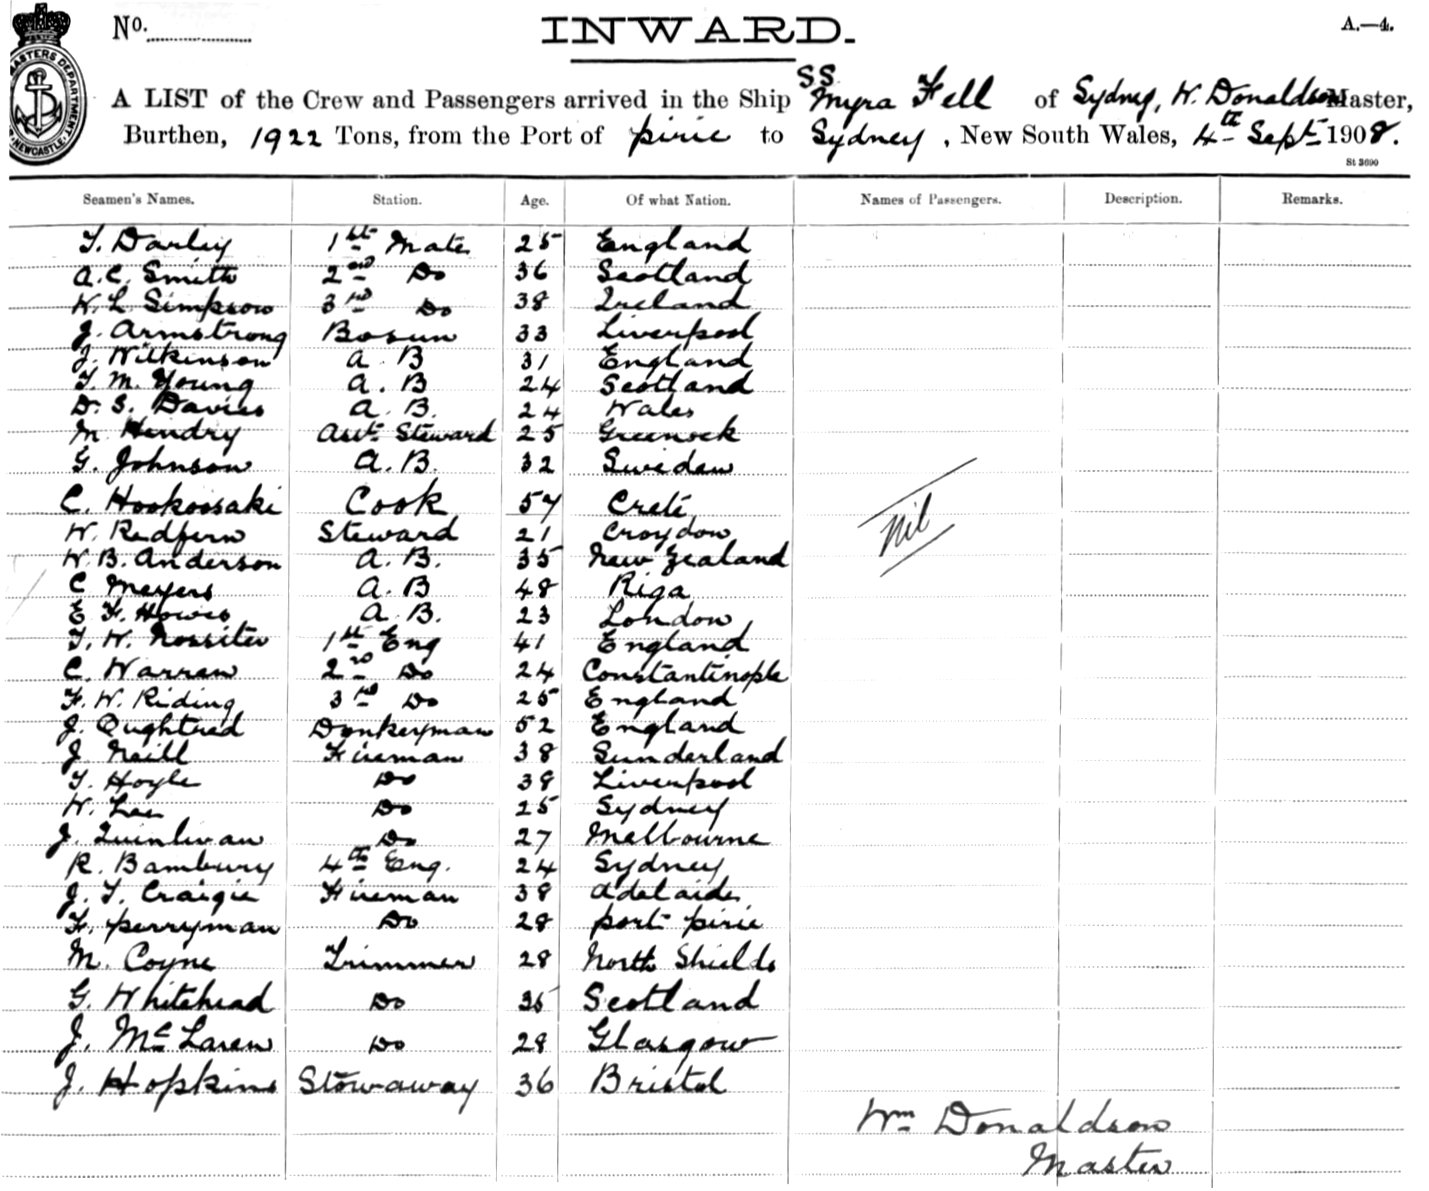 No. INWARD. A.—4.
A LIST of the Crew and Passengers arrived in the Ship SS Myra Fell of Sydney, W. Donaldson Master,
Burthen, 1922 Tons, from the Port of Pirie to Sydney, New South Wales, 4th Sept 1908.
St 3690
Seamen's Names. Station. Age. Of what Nation. Names of Passengers. Description. Remarks.
T. Darley 1st Mate 25 England
A.C. Smith 2nd Do 36 Scotland
W. L. Simpson 3rd Do 38 Ireland
J. Armstrong Bosun 33 Liverpool
J. Wilkinson A. B 31 England
T. M. Young A. B 24 Scotland
D. S. Davies A. B. 24 Wales
M Hendry Asst. Steward 25 Greenock
G. Johnson A. B. 32 Sweden
C. Hookoosaki Cook 57 Crete
Nil
W. Redfern Steward 21 Croydon
W. B. Anderson A. B. 35 New Zealand
C Meyers A. B 48 Riga
E F. Howes A. B. 23 London
T. W. Rossiter 1st Eng 41 England
C. Warren 2nd Do 24 Constantinople
F. W. Riding 3rd Do 25 England
J. Oughtred Donkeyman 52 England
J Neill Fireman 38 Sunderland
T. Hoyle Do 38 Liverpool
W. Lee Do 25 Sydney
J. Quinlivan Do 27 Melbourne
R. Bambury 4th Eng. 24 Sydney
J. T. Craigie Fireman 38 Adelaide
F. Perryman Do 28 Port Pirie
M. Coyne Trimmer 28 North Shields
G. Whitehead Do 35 Scotland
J. McLaren Do 28 Glasgow
J. Hopkins Stowaway 36 Bristol
Wm Donaldson
Master